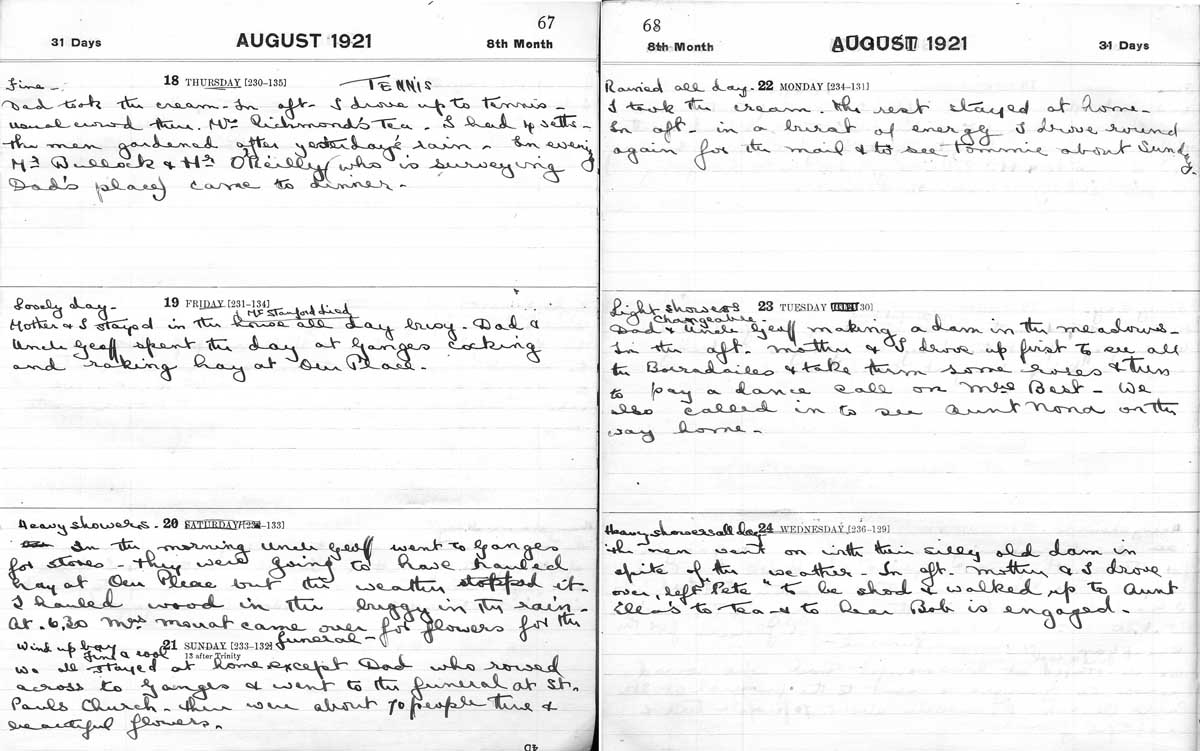 67
31 Days AUGUST 1921 8th Month
Fine - 18 THURSDAY [230-135] TENNIS
Dad took the cream. In aft. I drove up to tennis -
usual crowd there. Mrs Richmond's Tea. I had 4 setts -
The men gardened after yesterday's rain. In evening
Mr Bullock & Mr O'Reilly (who is surveying
Dad's place) came to dinner.
Lovely day - 19 FRIDAY [231-134]
Mr Stanford died
Mother & I stayed in the house all day busy. Dad &
Uncle Geoff spent the day at Ganges cocking
and raking hay at Our Place.
Heavy showers. 20 SATURDAY [232-133]
In the morning Uncle Geoff went to Ganges
for stores - they were going to have hauled
hay at Our Place but the weather stopped it.
I hauled wood in the buggy in the rain.
At 6.30 Mrs Mouat came over for flowers for the
funeral -
Wind up bay 21 SUNDAY [233-132]
Fine & cool 13 after Trinity
We all stayed at home except Dad who rowed
across to Ganges & went to the funeral at St.
Pauls Church. There were about 70 people there &
beautiful flowers.
68
8th Month AUGUST 1921 31 Days
Rained all day. 22 MONDAY [234-131]
I took the cream. The rest stayed at home.
In aft. in a burst of energy I drove round
again for the mail & to see Tommie about Sunday.
Light showers 23 TUESDAY
Changeable.
Dad & Uncle Geoff making a dam in the meadows.
In the aft. Mother & I drove up first to see all
the Borradailes & take them some roses & then
to pay a dance call on Mrs Best - We
also called in to see Aunt Nona on the
way home.
Heavy showers all day 24 WEDNESDAY [236-129]
The men went on with their silly old dam in
spite of the weather - In aft. Mother & I drove
over, left "Pete" to be shod & walked up to Aunt
Ella's to tea & to hear Bob is engaged.